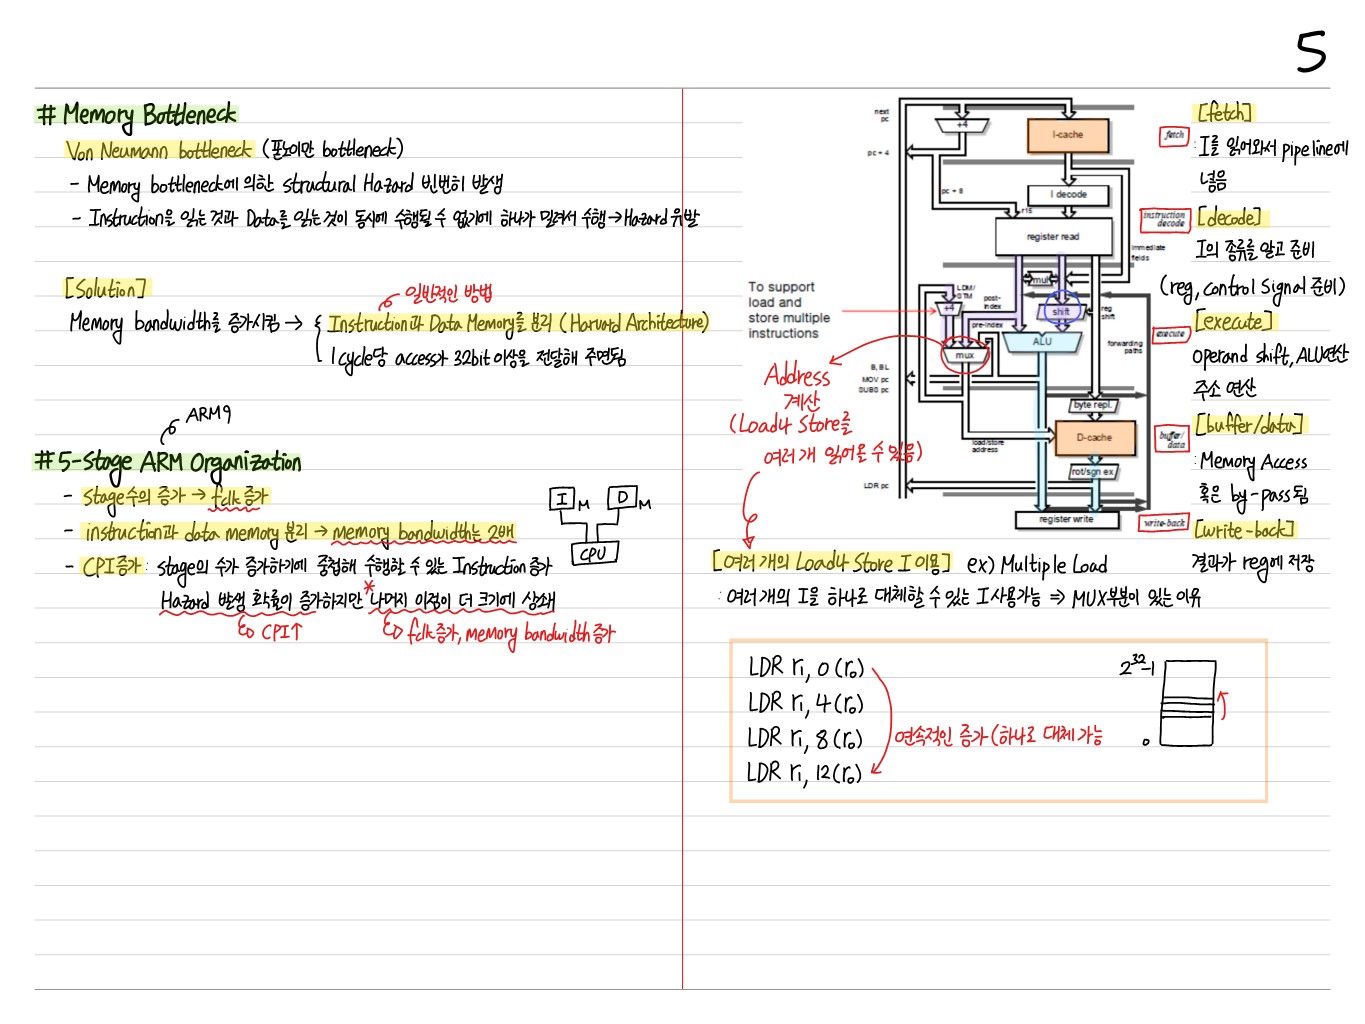 5
# Memory Bottleneck
Von Neumann bottleneck (폰노이만 bottleneck)
- Memory bottleneck에 의한 structural Hazard 빈번히 발생
- Instruction을 읽는 것과 Data를 읽는 것이 동시에 수행될 수 없기에 하나가 밀려서 수행 → Hazard 유발
[Solution]
일반적인 방법
Memory bandwidth를 증가시킴 → { Instruction과 Data Memory를 분리 (Harvard Architecture)
1 cycle당 access가 32bit 이상을 전달해 주면됨
ARM9
# 5-Stage ARM Organization
- stage수의 증가 → fclk 증가
- instruction과 data memory 분리 → memory bandwidth는 2배
I M D M
CPU
- CPI증가 : stage의 수가 증가하기에 중첩해 수행할 수 있는 Instruction 증가
Hazard 발생 확률이 증가하지만 * 나머지 이점이 더 크기에 상쇄
CPI↑
fclk증가, memory bandwidth 증가
next pc
+4
I-cache
fetch
pc + 4
pc + 8
I decode
r15
instruction decode
register read
immediate fields
mul
LDM/STM
post-index
+4
shift
reg shift
pre-index
execute
ALU
forwarding paths
mux
B, BL
MOV pc
SUBS pc
byte repl.
D-cache
buffer/data
load/store address
rot/sgn ex
LDR pc
register write
write-back
To support
load and
store multiple
instructions
Address
계산
(Load나 Store를
여러개 읽어올 수 있음)
[fetch]
: I를 읽어와서 pipeline에
넣음
[decode]
I의 종류를 알고 준비
(reg, control signal 준비)
[execute]
operand shift, ALU연산
주소 연산
[buffer/data]
: Memory Access
혹은 by-pass됨
[write-back]
결과가 reg에 저장
[여러개의 Load나 Store I 이용] ex) Multiple Load
: 여러개의 I을 하나로 대체할 수 있는 I 사용가능 ⇒ MUX부분이 있는 이유
LDR r1, 0(r0)
LDR r1, 4(r0)
LDR r1, 8(r0)
LDR r1, 12(r0)
연속적인 증가 (하나로 대체 가능
2^32-1
0